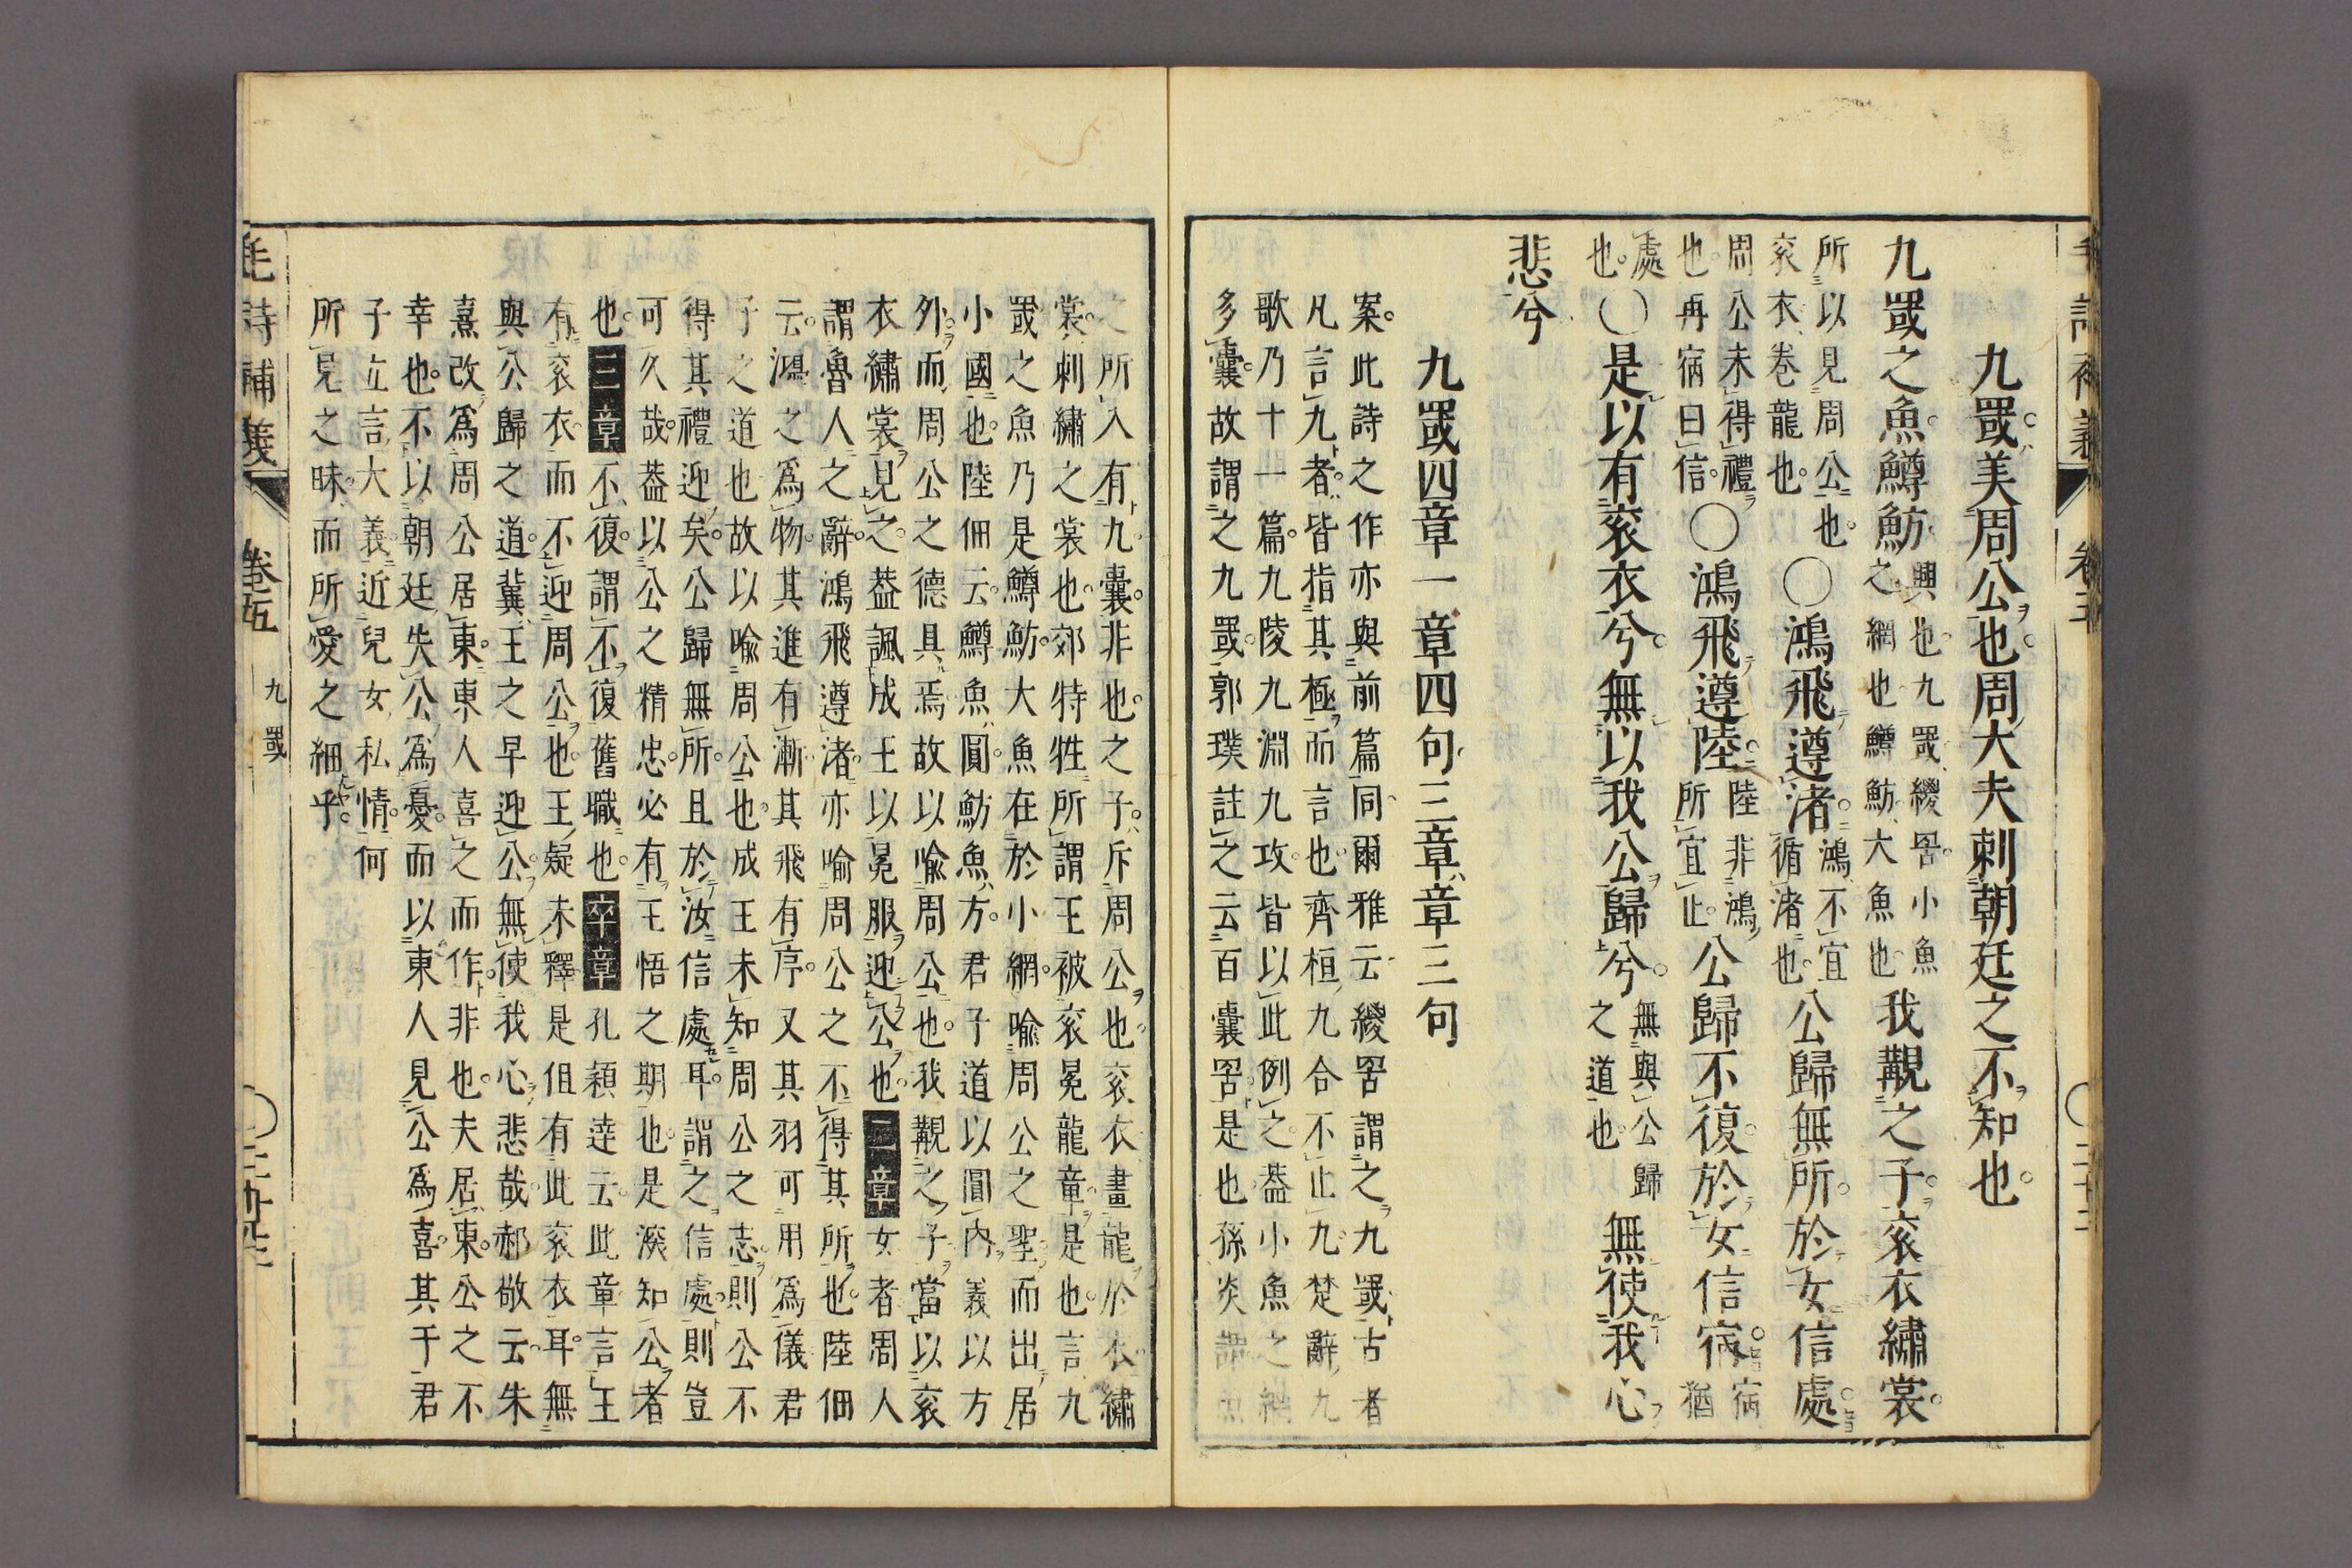 九罭。美周公也。周大夫刺朝廷之不知也。
九罭之魚。鱒魴。興也。九罭、緵罟。小魚之網也鱒魴、大魚也我覯之子。袞衣繡裳。
所以見周公也。袞衣、卷龍也。○鴻飛遵渚。鴻、不宜循渚也。公歸無所。於女信處。
周公未得禮也。再宿曰信。○鴻飛遵陸。陸非鴻所宜止。公歸不復。於女信宿。宿猶
處也。○是以有袞衣兮。無以我公歸兮。無與公歸之道也無使我心
悲兮
九罭四章一章四句三章章三句
案。此詩之作亦與前篇同爾雅云緵罟謂之九罭古者
凡言九者。皆指其極而言也齊桓九合不止九。楚辭九
歌乃十一篇。九陵九淵九攻。皆以此例之。蓋小魚之網
多囊。故謂之九罭。郭璞註之云百囊罟。是也孫炎謂魚
之所入有九囊。非也。之子。斥周公也。袞衣畫龍於衣繡
裳。刺繡之裳也。郊特牲所謂王被袞冕龍章。是也。言九
罭之魚乃是鱒魴。大魚在於小網。喻周公之聖而出居
小國也。陸佃云。鱒魚圓。魴魚方。君子道以圓內義以方
外。而周公之德具焉故以喻周公也。我覯之子當以袞
衣繡裳見之。蓋諷成王以冕服迎公也。二章女者周人
謂魯人之辭。鴻飛遵渚亦喻周公之不得其所也。陸佃
云。鴻之為物。其進有漸其飛有序。又其羽可用為儀君
子之道也故以喻周公也。成王未知周公之志。則公不
得其禮迎矣。公歸無所。且於汝信處耳。謂之信處。則豈
可久哉。蓋以公之精忠必有王悟之期也。是深知公者
也。三章不復。謂不復舊職也。卒章孔穎達云此章言王
有袞衣而不迎周公也。王疑未釋。是但有此袞衣耳。無
與公歸之道。冀王之早迎公。無使我心悲哉。郝敬云朱
熹改為周公居東。東人喜之而作。非也。夫居東。公之不
幸也。不以朝廷失公為憂。而以東人見公為喜。其于君
子立言大義。近兒女私情。何
所見之昧而所愛之細乎。
毛詩補義 卷五 九罭